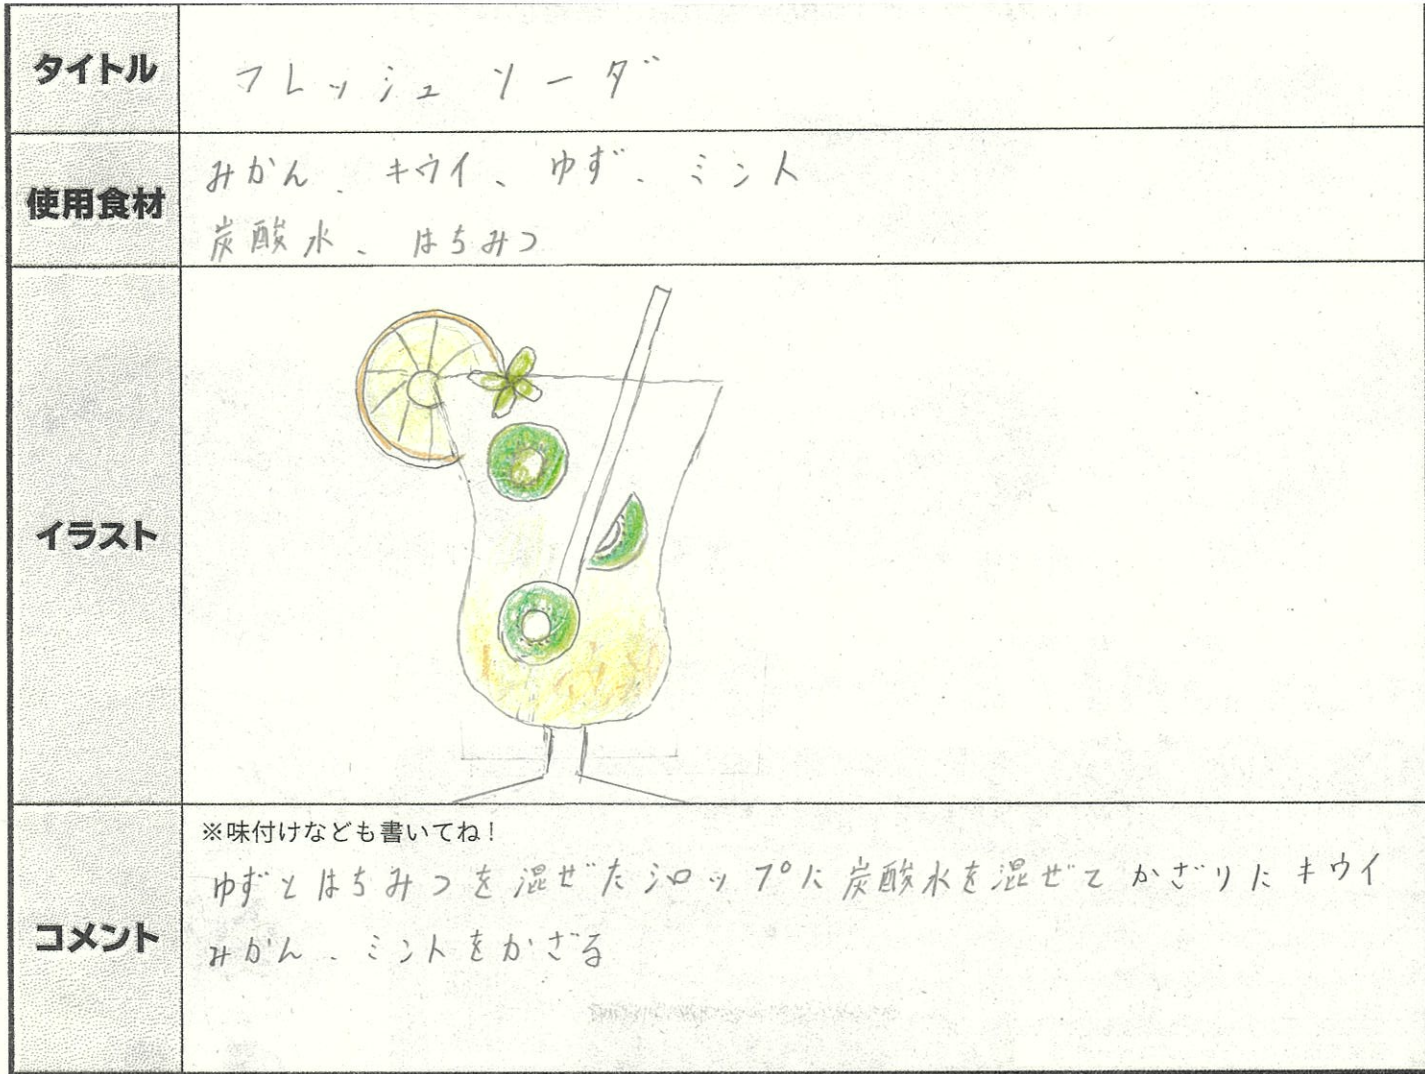 タイトル
フレッシュソーダ
使用食材
みかん、キウイ、ゆず、ミント
炭酸水、はちみつ
イラスト
コメント
※味付けなども書いてね！
ゆずとはちみつを混ぜたシロップに炭酸水を混ぜてかざりにキウイ
みかん、ミントをかざる